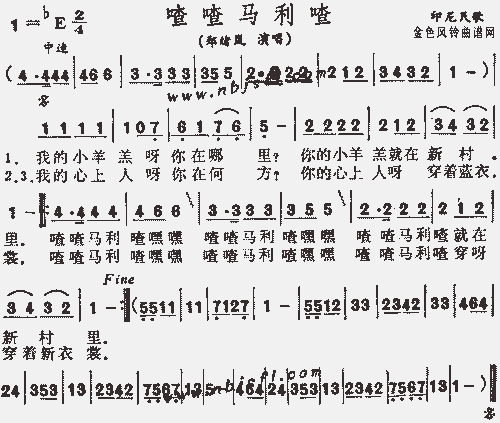 喳喳马利喳
1=♭E 2/4
中速
(郑绪岚 演唱)
印尼民歌
金色风铃曲谱网
(4·444 | 466 | 3·3 33 | 355 | 2·222 | 212 | 3432 |
1111 | 107 | 6176 | 5 - | 2222 | 212 | 3432 |
1. 我的小羊 羔呀 你在哪 里? 你的小羊 羔就在 新村
2.3.我的心上 人呀 你在何 方? 你的心上 人呀 穿着蓝衣.
1 - :4·4 44 | 466 | 3·3 33 | 355 | 2·2 22 | 212 |
里. 喳喳马利 喳嘿嘿 喳喳马利 喳嘿嘿 喳喳马利 喳就在
裳. 喳喳马利 喳嘿嘿 喳喳马利 喳嘿嘿 喳喳马利 喳穿呀
Fine
3432 | 1 - :(5511 | 11 | 7127 | 1 - | 5512 | 33 | 2343 | 33 | 464 |
新村 里.
穿着新衣 裳.
24 | 353 | 13 | 2342 | 7567 | 13 | 5 - | 464 | 24 | 353 | 13 | 2342 | 7567 | 13 | 1 - )